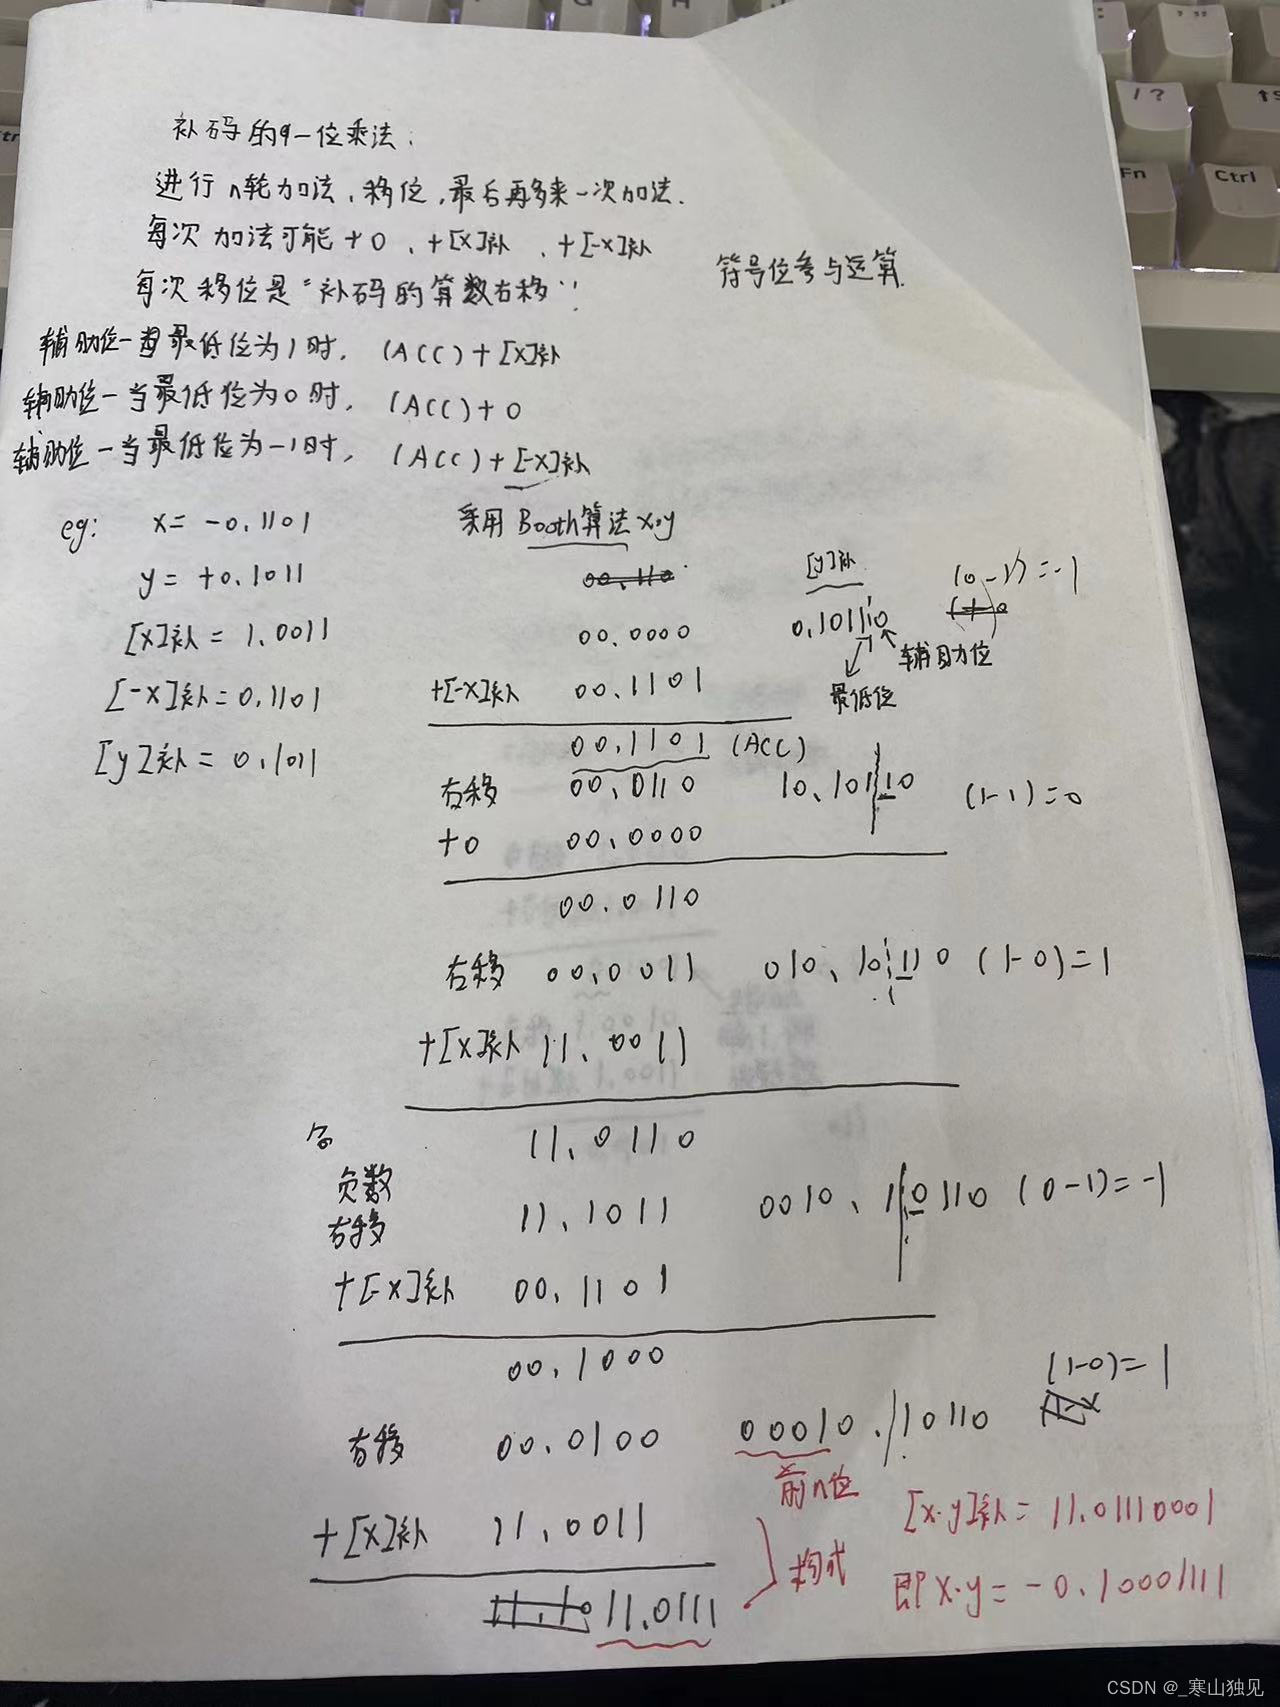 补码的一位乘法：
进行n轮加法、移位,最后再多来一次加法.
每次加法可能+0、+[X]补、+[-X]补
每次移位是"补码的算数右移"
符号位参与运算.
辅助位一当最低位为1时, (ACC)+[X]补
辅助位一当最低位为0时, (ACC)+0
辅助位一当最低位为-1时, (ACC)+[-X]补
eg: x= -0.1101
采用Booth算法x·y
y= +0.1011
[X]补=1.0011
[-X]补=0.1101
[y]补=0.1011
00.110
[y]补
(0-1)=-1
00.0000 0.10110
辅助位
最低位
+[-X]补 00.1101
00.1101 (ACC)
右移 00.0110 10.10110 (1-1)=0
+0 00.0000
00.0110
右移 00.0011 010.10110 (1-0)=1
+[X]补 11.0011
11.0110
负数
右移 11.1011 0010.10110 (0-1)=-1
+[-X]补 00.1101
00.1000
(1-0)=1
右移 00.0100 00010.10110
前n位
+[X]补 11.0011
构成
11.0111
[x·y]补=11.01110001
即x·y=-0.10001111